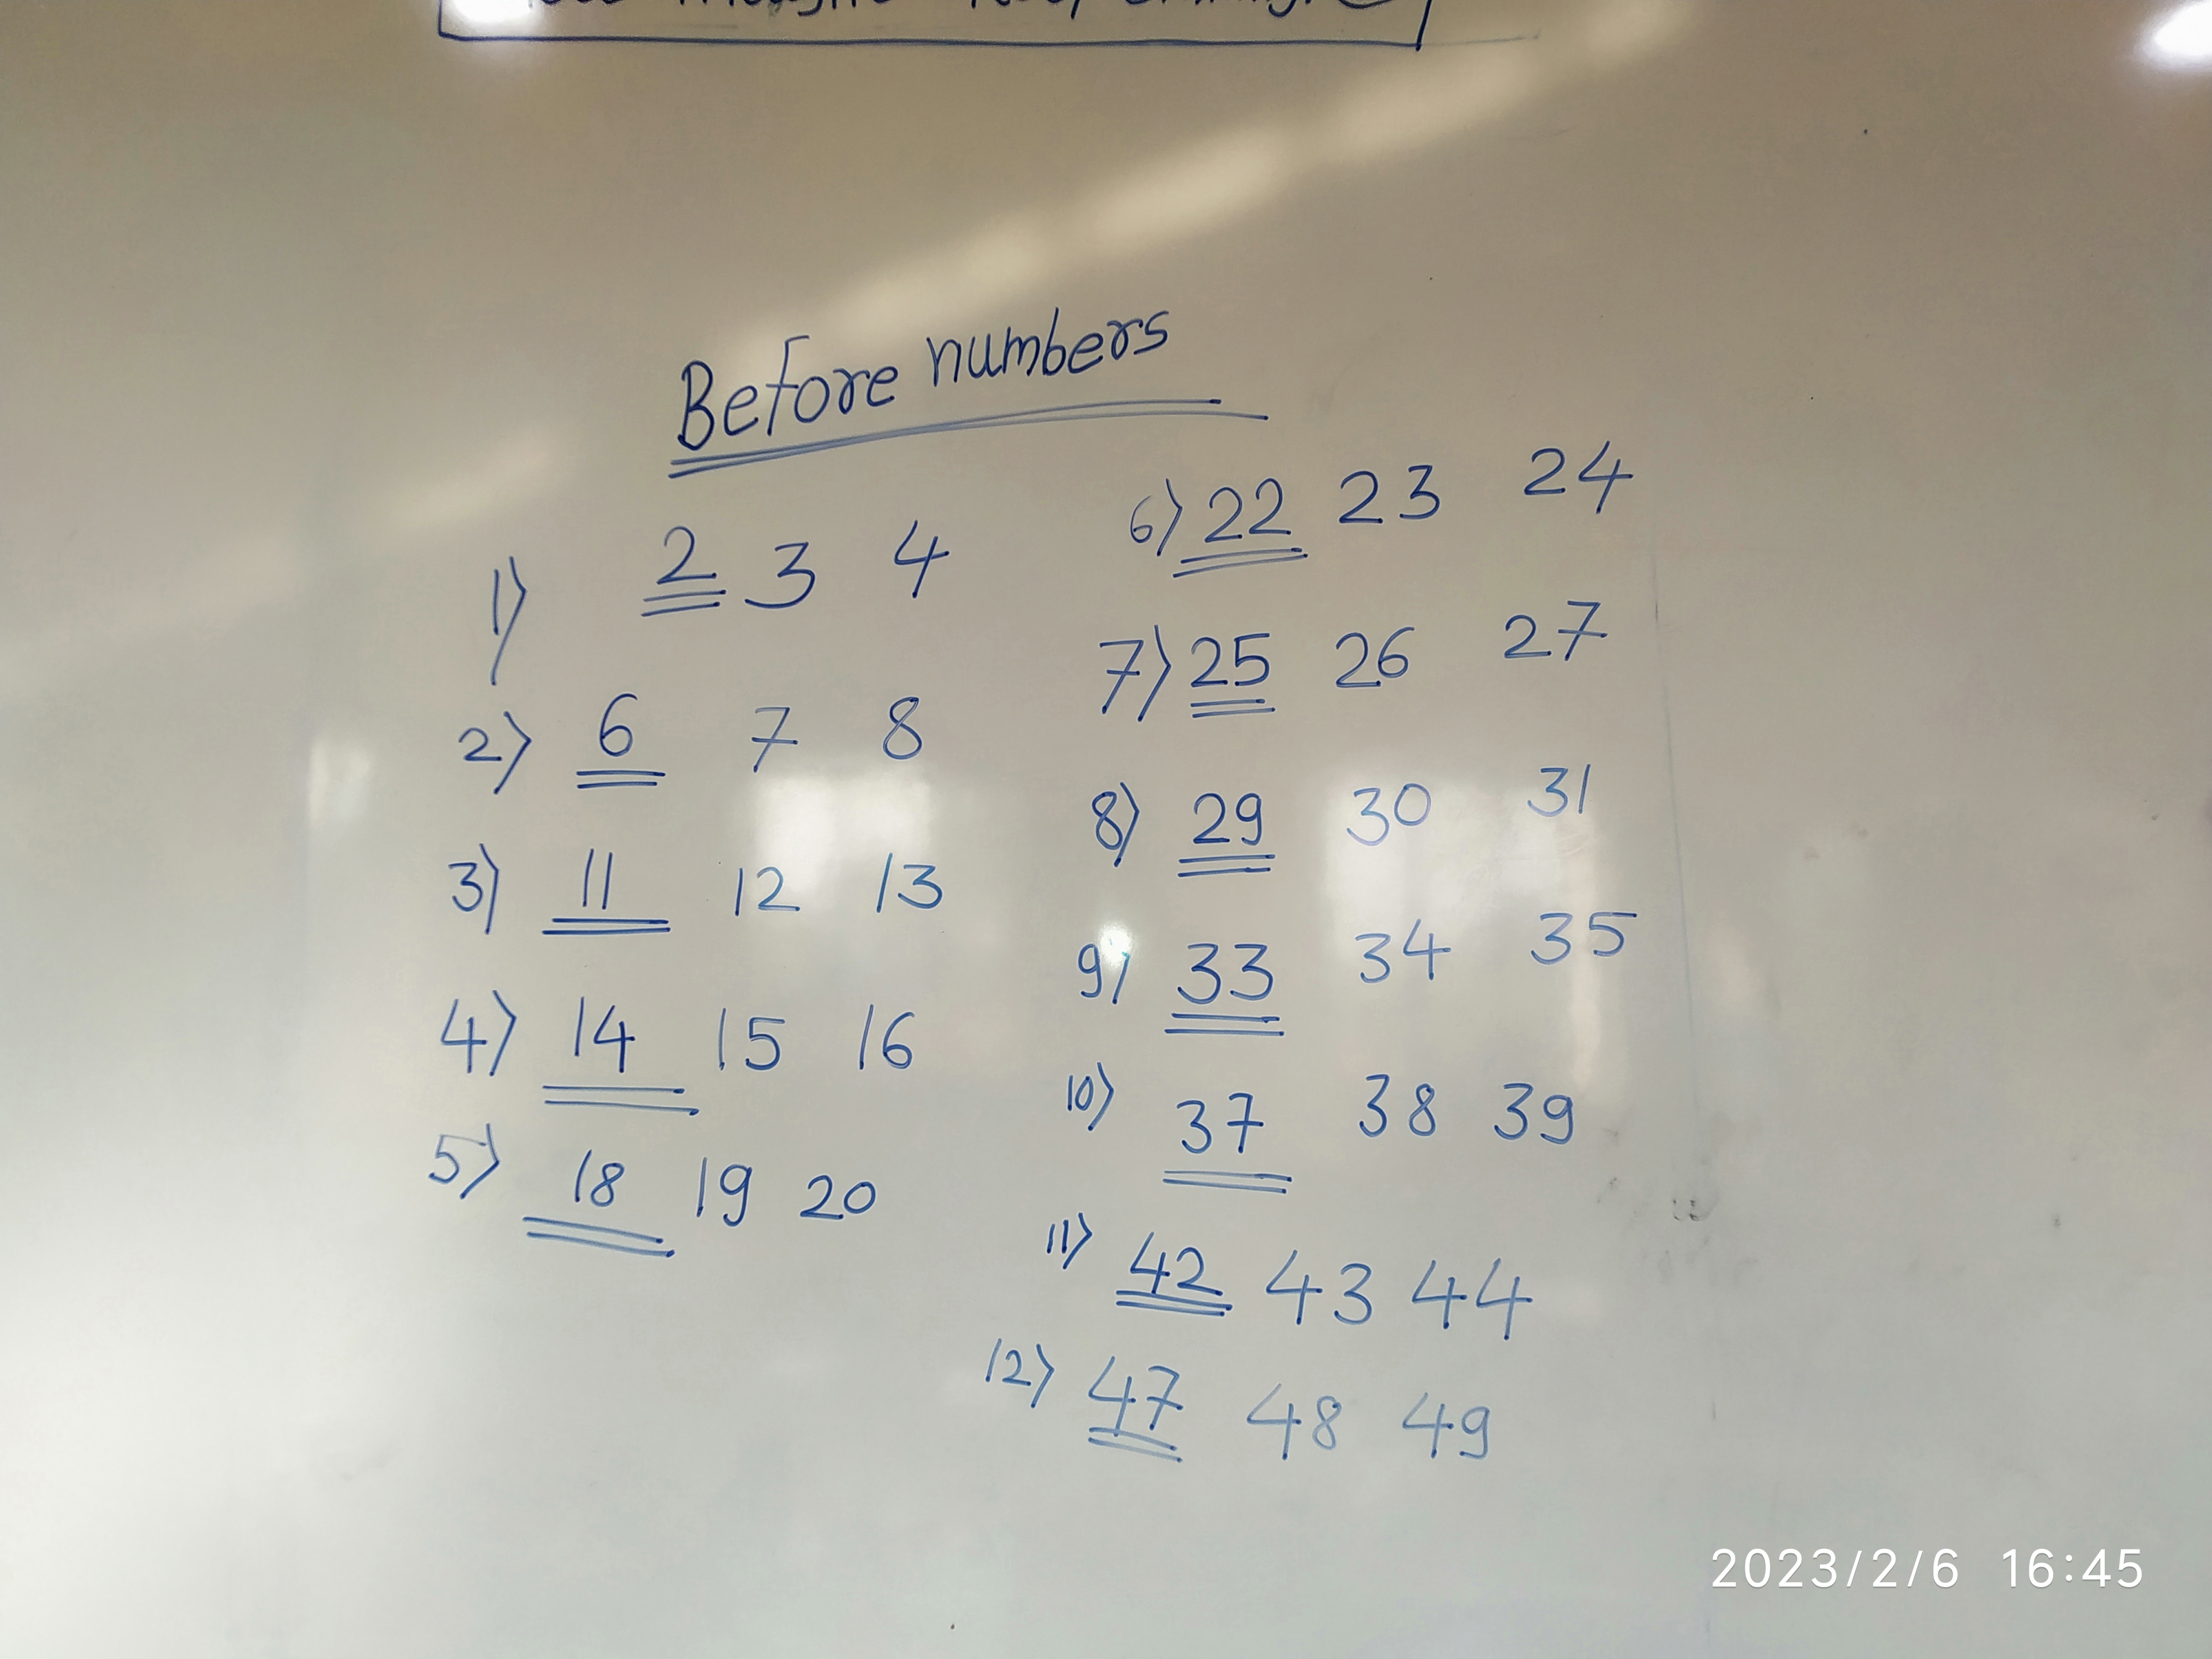 Before numbers
1) 2 3 4
2) 6 7 8
3) 11 12 13
4) 14 15 16
5) 18 19 20
6) 22 23 24
7) 25 26 27
8) 29 30 31
9) 33 34 35
10) 37 38 39
11) 42 43 44
12) 47 48 49
2023/2/6 16:45